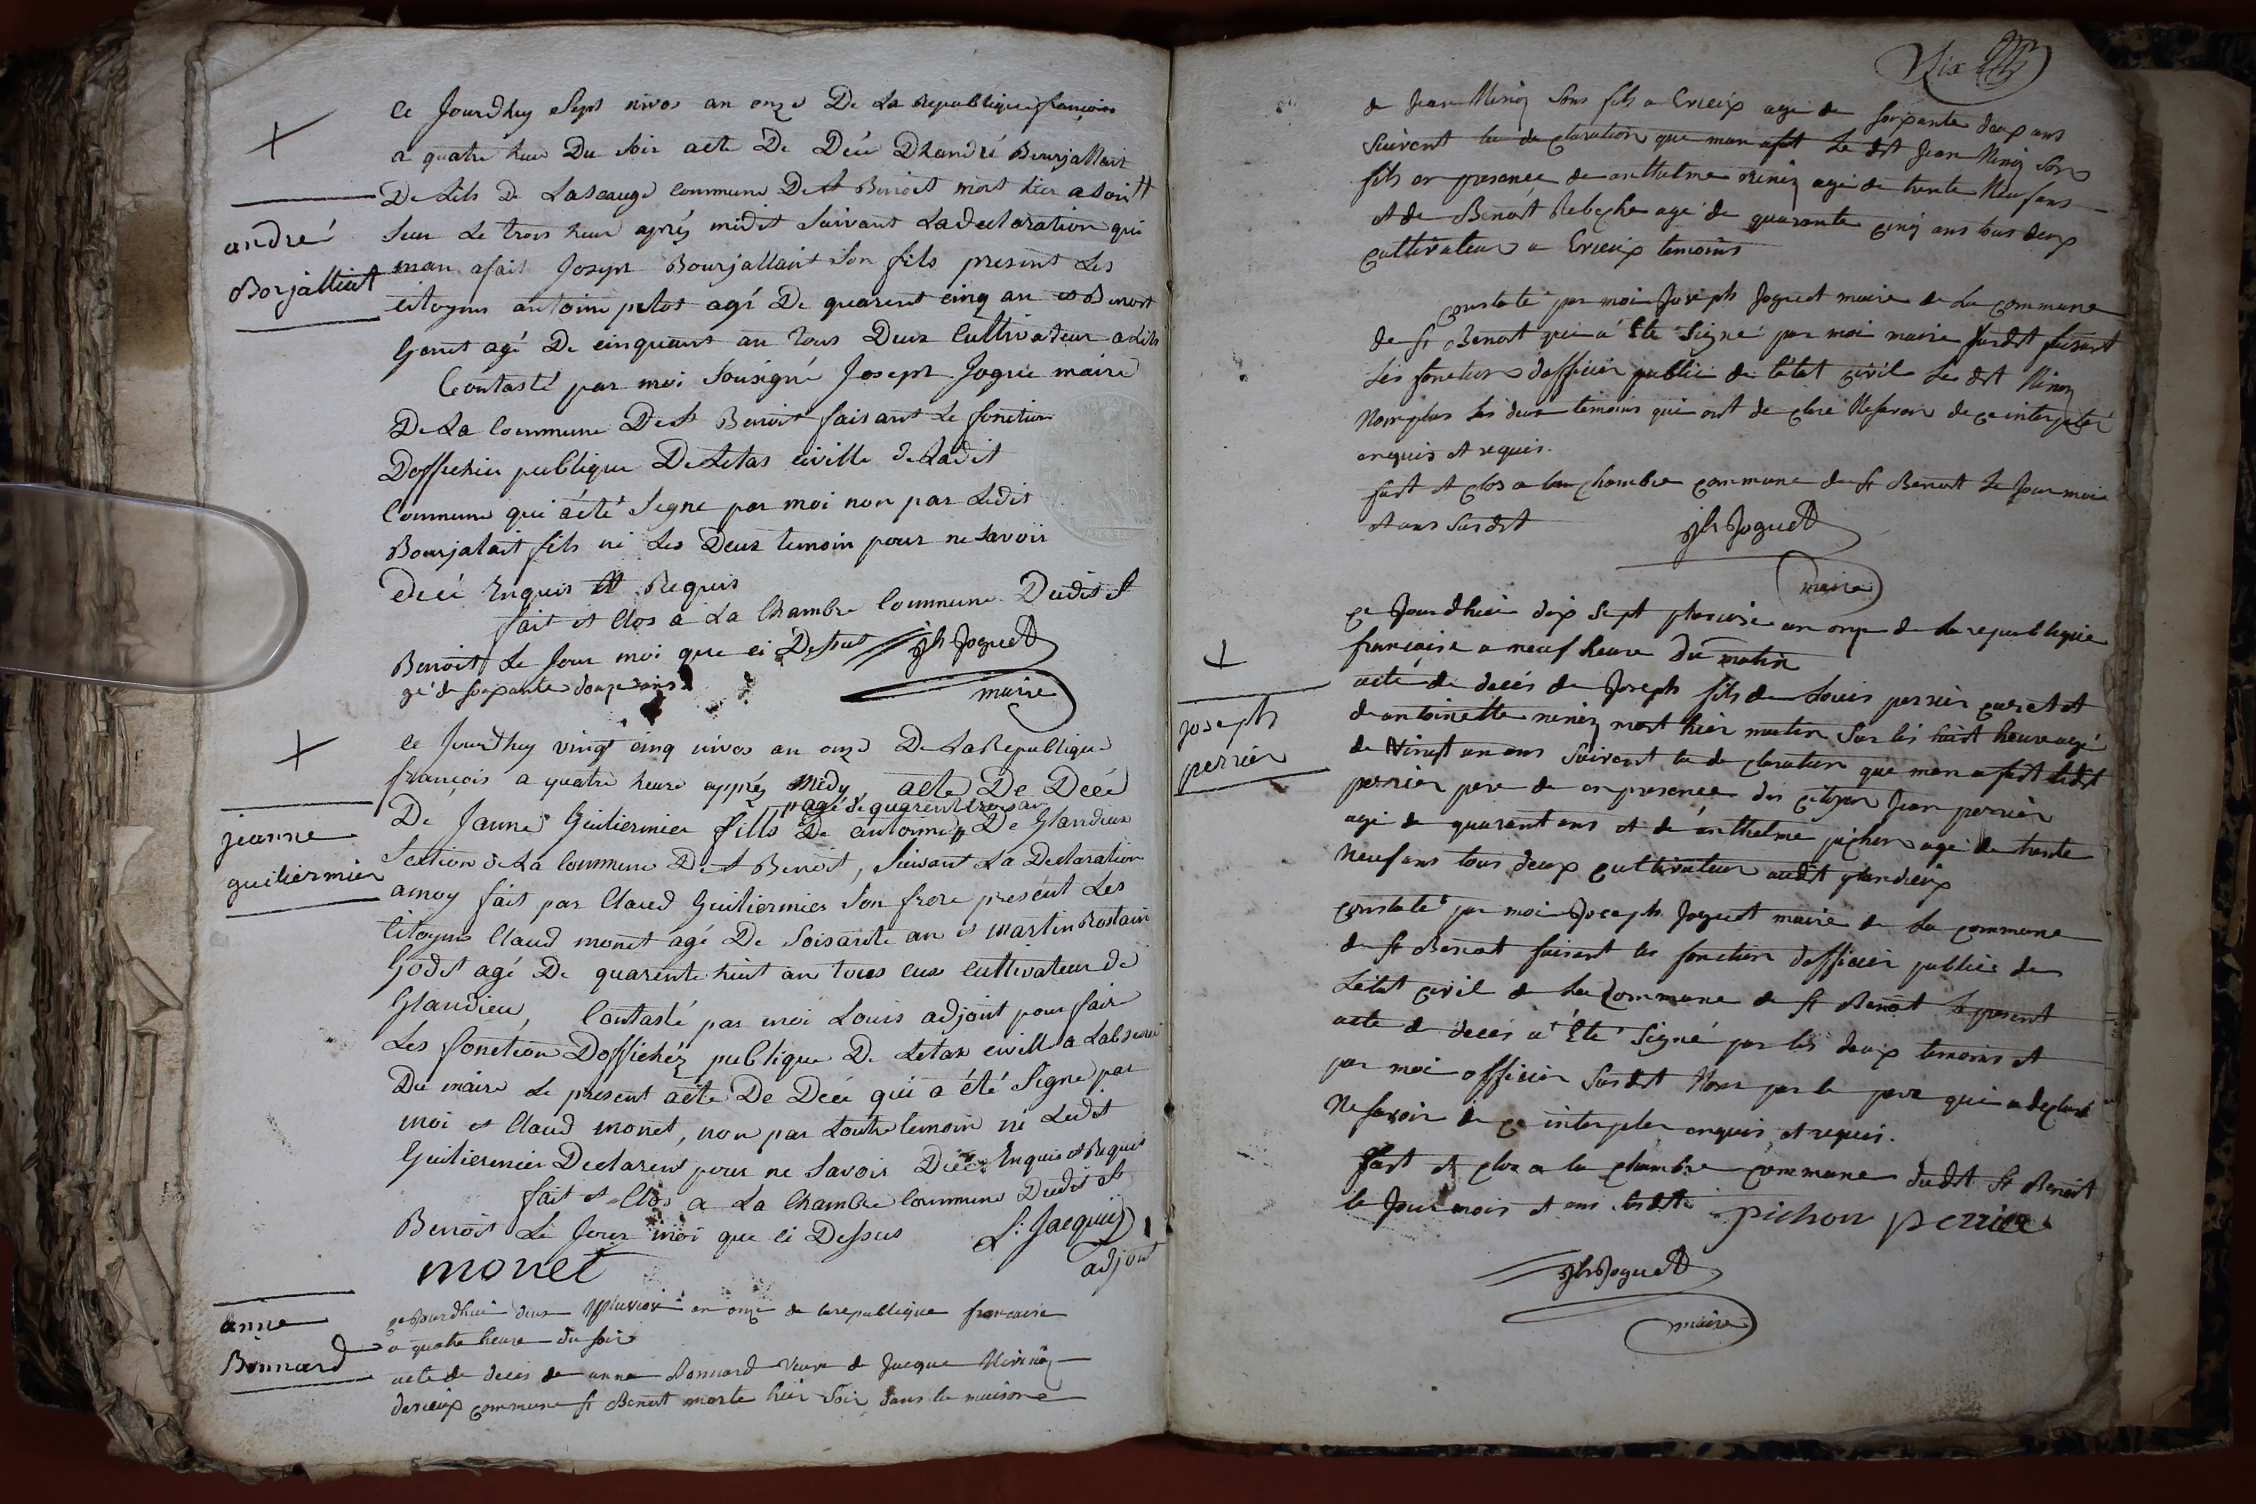 +
andré
Borjalliat
Ce Jourdhuy Sept nivos an onze De La Republique françoise
a quatre heure Du Soir acte De Décé Dhandré Bourjallait
De Lils De Lasauge commune De St Benoit mort hier a Soir #
Sur Le trois heure aprés midit Suivant La declaration qui
man afait Joseph Bourjallait Son fils present Les
citoyens antoine pelos agé De quarent cinq an et Benoit
Gonet agé De cinquant an tous Deux Cultivateur a Lils
Contasté par moi Sousigné Joseph Jogue maire
De La Commune De St Benoit faisant Le fonction
Doffichier publique De Letas civille de Ladit
Commune qui aété Signe par moi non par Ledit
Bourjalait fils ni Les Deux temoin pour ne Savoir
De cé Enquis et Requis
fait et Clos a La Chambre Commune Dudit St
Benoit Le Jour moi que ci Dessus Jh Joguet
maire
gé de soixante douze ans
+
jeanne
guiliermier
Ce Jourdhuy vingt cinq nivos an onze De La Republique
françois a quatre heure apprés midy acte De Décé
agé de quarent trois an
De Janne Guiliermier fille De antoine De Glandieu
Section de La Commune De St Benoit, Suivant La Declaration
amoy fait par Claud Guiliermier Son frere present Les
Citoyens Claud monet agé De Soisante an et Martin Rostain
Godet agé De quarente huit an tous eux Cultivateur de
Glandieu, Contasté par moi Louis adjoint pour faire
Les fonction Doffichéz publique De Letax civill a Labsence
Du maire Le present acte De Décé qui a été Signe par
moi et Claud monet, non par Loutre temoin ni Ledit
Guiliermier Declarent pour ne Savoir De cé Enquis et Requis
fait et Clos a La Chambre Commune Dudit St
Benoit Le Jour moi que ci Dessus L. Jacquij
monet adjoint
anne
Bonnard
ce Jourdhui deux pluviose an onze de la republique francaise
a quatre heure du soir
acte de deces de anne Bonnard veuve de Jacque Ninoz
derieux commune St Benoit morte hier Soir dans la maison
Six
de Jean Ninoz Sons fils a Crieux agé de soixante deux ans
Suivent la declaration que man afet Le dit Jean Ninoz Son
fils en presence de anthelme Ninoz agé de trente Neuf ans
et de Benoit Rebeche agé de quarante cinq ans tous deux
cultivateur a Crieux temoins
constaté par moi Joseph Joguet maire de La commune
de St Benoit qui a Eté Signé par moi maire surdit faisant
Les fonction dofficier public de létat civil Le dit Ninoz
Nomplus les deux temoins qui ont declaré Nesavoir de ce interpelé
enquis et requis.
fait et clos a la chambre commune de St Benoit Le Jour mois
et ans Susdit Jh Joguet
maire
+
joseph
perrier
ce Jourdhui dix Sept pluviose an onze de la republique
francaise a neuf heure du matin
acte de decés de Joseph fils de Louis perrier et
de antoinette ninoz mort hier matin Sur les huit heure agé
de Vingt un ans Suivent la declaration que man a fait ledit
perrier pere de en presence du citoyen Jean perrier
agé de quarent ans et de anthelme pichon agé de trente
neuf ans tous deux cultivateur audit glandieux
constaté par moi Joseph Joguet maire de la commune
de St Benoit faisent les fonction dofficier public de
Létat civil de la Commune de St Benoit le present
acte de decés a Eté Signé par les deux temoins et
par moi officier Susdit Non par le pere qui a declaré
Nesavoir de ce interpeler enquis, et requis.
fait et clos a la chambre commune dudit St Benoit
le Jour mois et ans susdits pichon perrier
Jh Joguet
maire